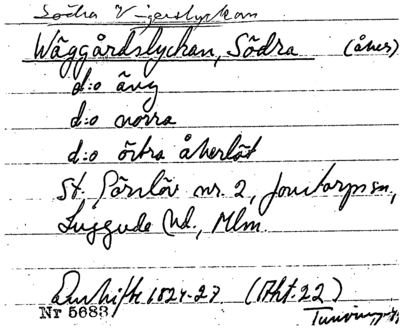 Södra Vägerslyckan
Wäggårdslyckan, Södra (åker)
d:o äng
d:o norra
d:o östra åkerlöt
St. Pårslöv nr. 2, Jonstorps sn,
Luggude hd., Mlm.
Enskifte 1824-27 (Akt. 22)
Nr 5683